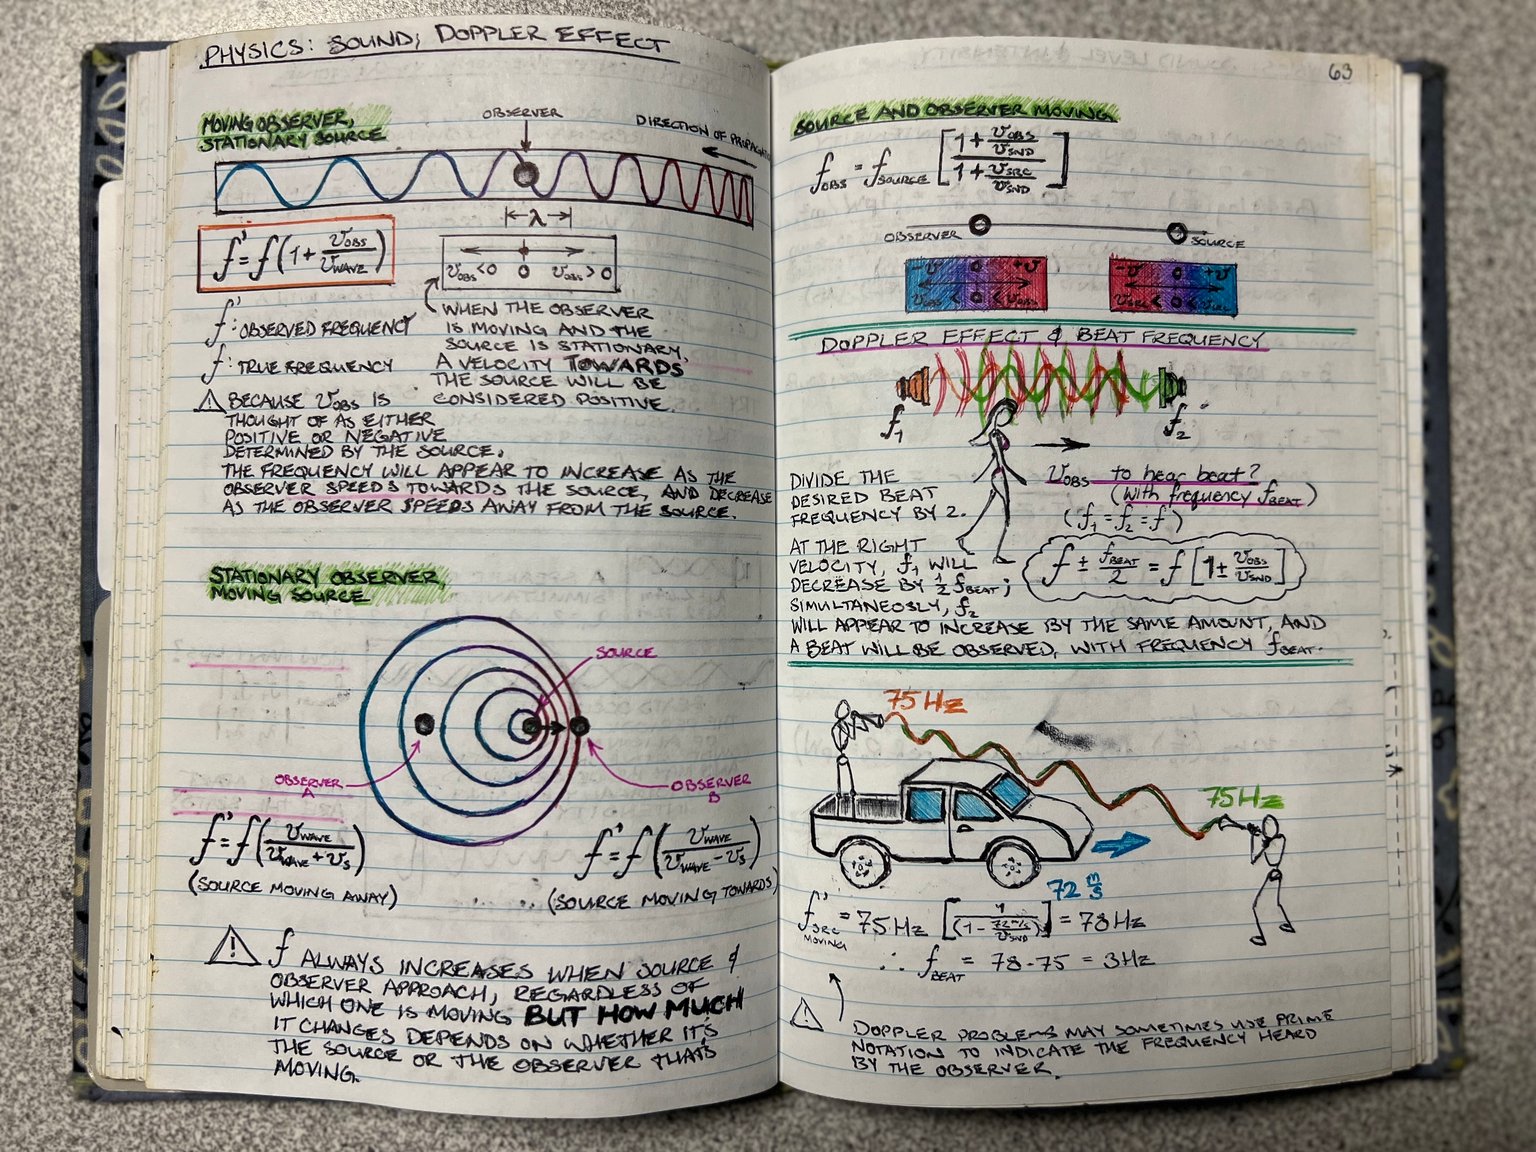 PHYSICS: SOUND; DOPPLER EFFECT
MOVING OBSERVER,
STATIONARY SOURCE
OBSERVER
DIRECTION OF
λ
f' = f (1 + v_OBS / v_WAVE)
v_OBS < 0   0   v_OBS > 0
f': OBSERVED FREQUENCY
f: TRUE FREQUENCY
WHEN THE OBSERVER
IS MOVING AND THE
SOURCE IS STATIONARY,
A VELOCITY TOWARDS
THE SOURCE WILL BE
CONSIDERED POSITIVE.
⚠ BECAUSE v_OBS IS
THOUGHT OF AS EITHER
POSITIVE OR NEGATIVE
DETERMINED BY THE SOURCE.
THE FREQUENCY WILL APPEAR TO INCREASE AS THE
OBSERVER SPEEDS TOWARDS THE SOURCE, AND DECREASE
AS THE OBSERVER SPEEDS AWAY FROM THE SOURCE.
STATIONARY OBSERVER,
MOVING SOURCE
SOURCE
OBSERVER
A
OBSERVER
B
f' = f (v_WAVE / (v_WAVE + v_S))
(SOURCE MOVING AWAY)
f' = f (v_WAVE / (v_WAVE - v_S))
(SOURCE MOVING TOWARDS)
⚠ f ALWAYS INCREASES WHEN SOURCE &
OBSERVER APPROACH, REGARDLESS OF
WHICH ONE IS MOVING BUT HOW MUCH
IT CHANGES DEPENDS ON WHETHER IT'S
THE SOURCE OR THE OBSERVER THAT'S
MOVING.
63
SOURCE AND OBSERVER MOVING
f_OBS = f_SOURCE [(1 + v_OBS / v_SND) / (1 + v_SRC / v_SND)]
OBSERVER
SOURCE
-v 0 +v
v_OBS < 0 < v_OBS
-v 0 +v
v_SRC < 0 <
DOPPLER EFFECT & BEAT FREQUENCY
f_1
f_2
DIVIDE THE
DESIRED BEAT
FREQUENCY BY 2.
v_OBS to hear beat?
(with frequency f_BEAT)
(f_1 = f_2 = f)
f ± f_BEAT / 2 = f [1 ± v_OBS / v_SND]
AT THE RIGHT
VELOCITY, f_1 WILL
DECREASE BY ½ f_BEAT;
SIMULTANEOUSLY, f_2
WILL APPEAR TO INCREASE BY THE SAME AMOUNT, AND
A BEAT WILL BE OBSERVED, WITH FREQUENCY f_BEAT.
75 Hz
75 Hz
72 m/s
f'_SRC MOVING = 75 Hz [1 / (1 - 72 m/s / v_SND)] = 78 Hz
∴ f_BEAT = 78 - 75 = 3 Hz
⚠ DOPPLER PROBLEMS MAY SOMETIMES USE PRIME
NOTATION TO INDICATE THE FREQUENCY HEARD
BY THE OBSERVER.